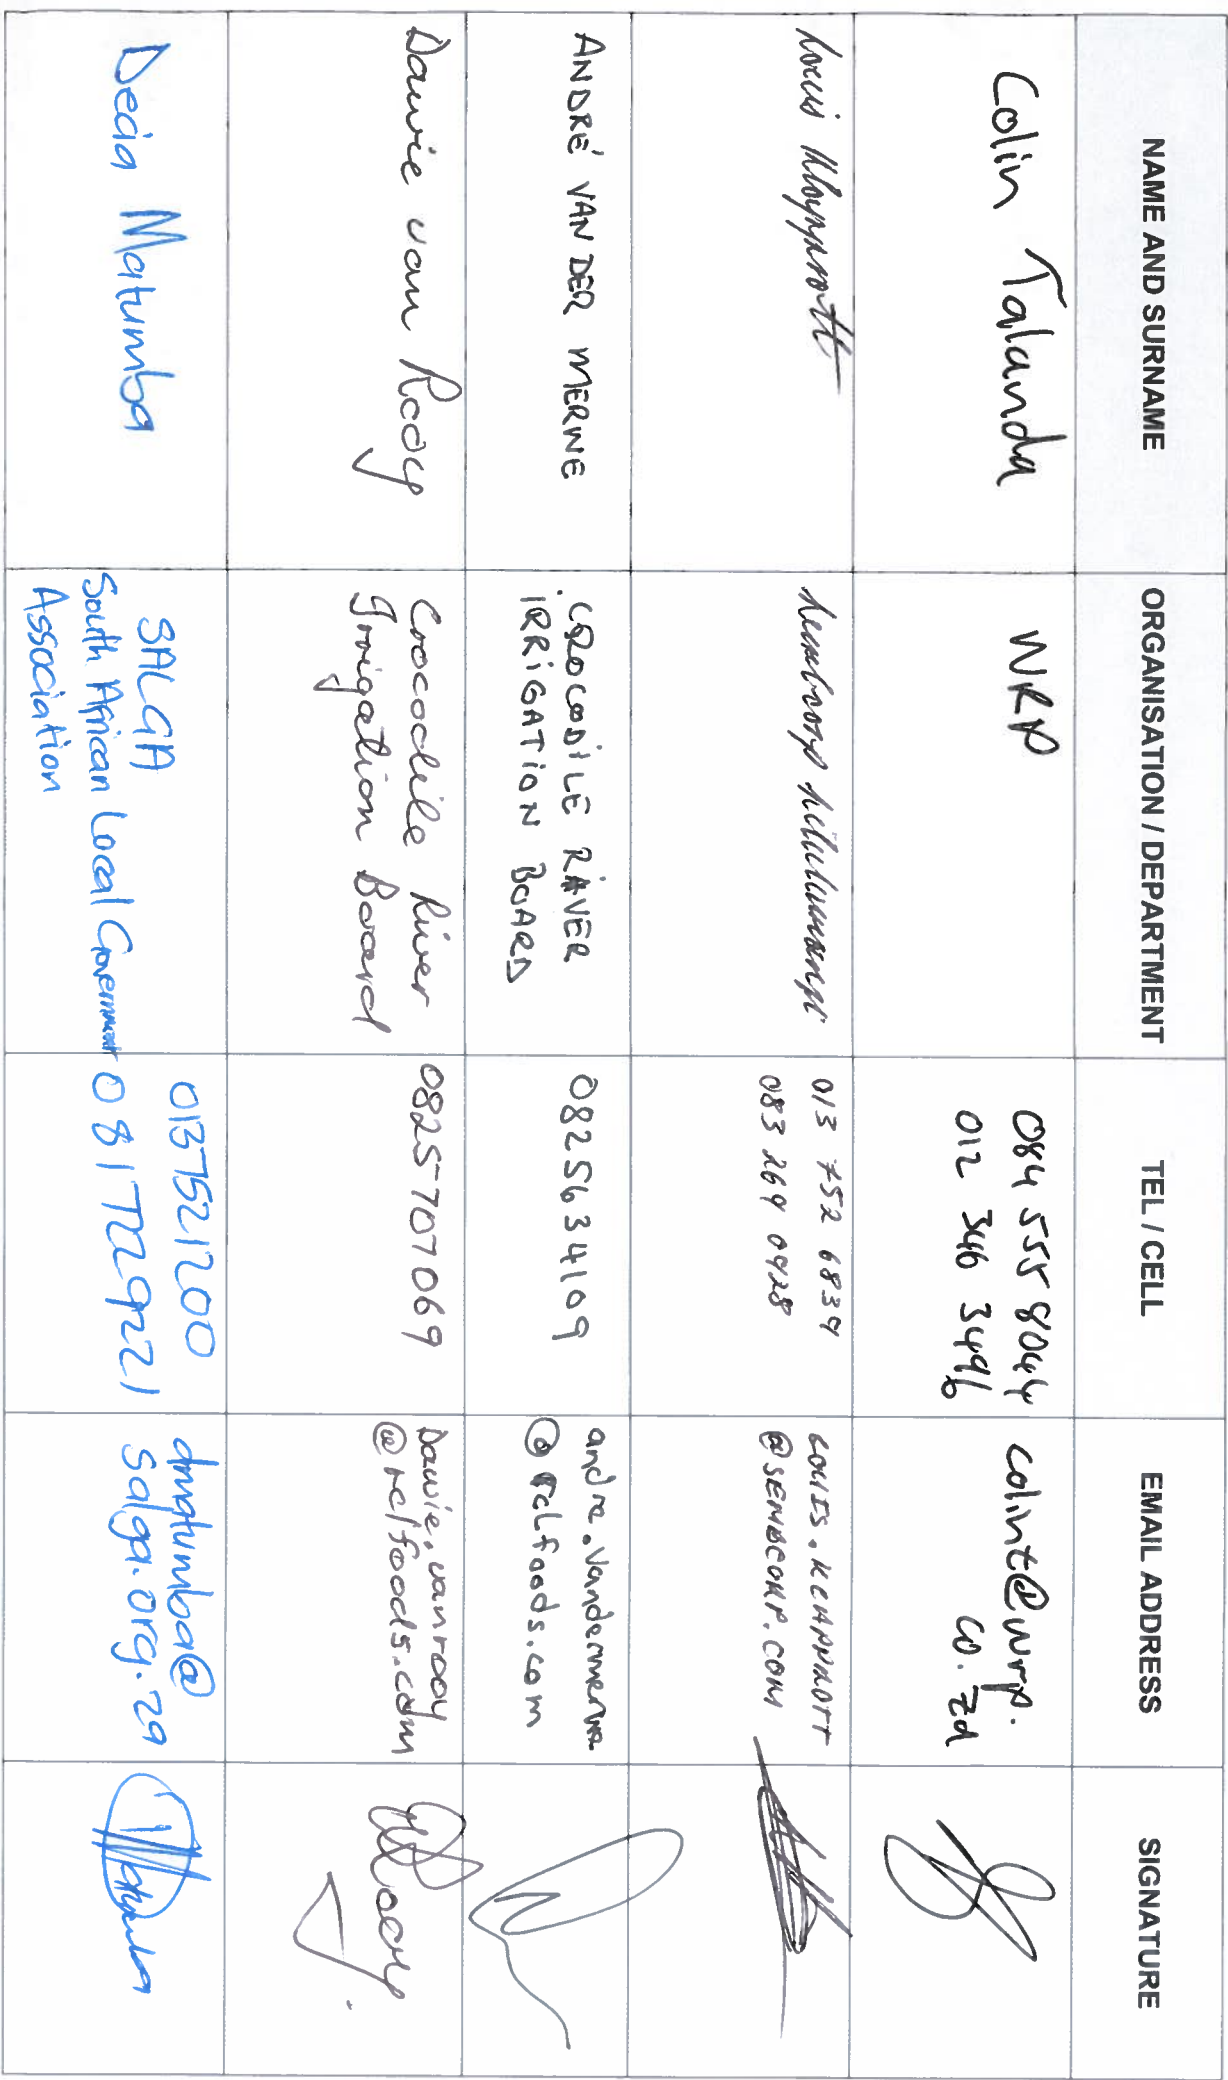 NAME AND SURNAME
ORGANISATION / DEPARTMENT
TEL / CELL
EMAIL ADDRESS
SIGNATURE
Colin Talanda
WRP
084 555 8044
012 346 3496
colint@wrp.
co.za
Louis
013 752 6839
083 269 0928
@SEMBCORP.COM
ANDRÉ VAN DER MERWE
CROCODILE RIVER
IRRIGATION BOARD
0825634109
andre.vandermerwe
@rclfoods.com
Dawie van Rooy
Crocodile River
Irrigation Board
0825707069
Dawie.vanrooy
@rclfoods.com
Decia Matumba
SALGA
South African Local Government
Association
0137521200
0817729221
dmatumba@
salga.org.za